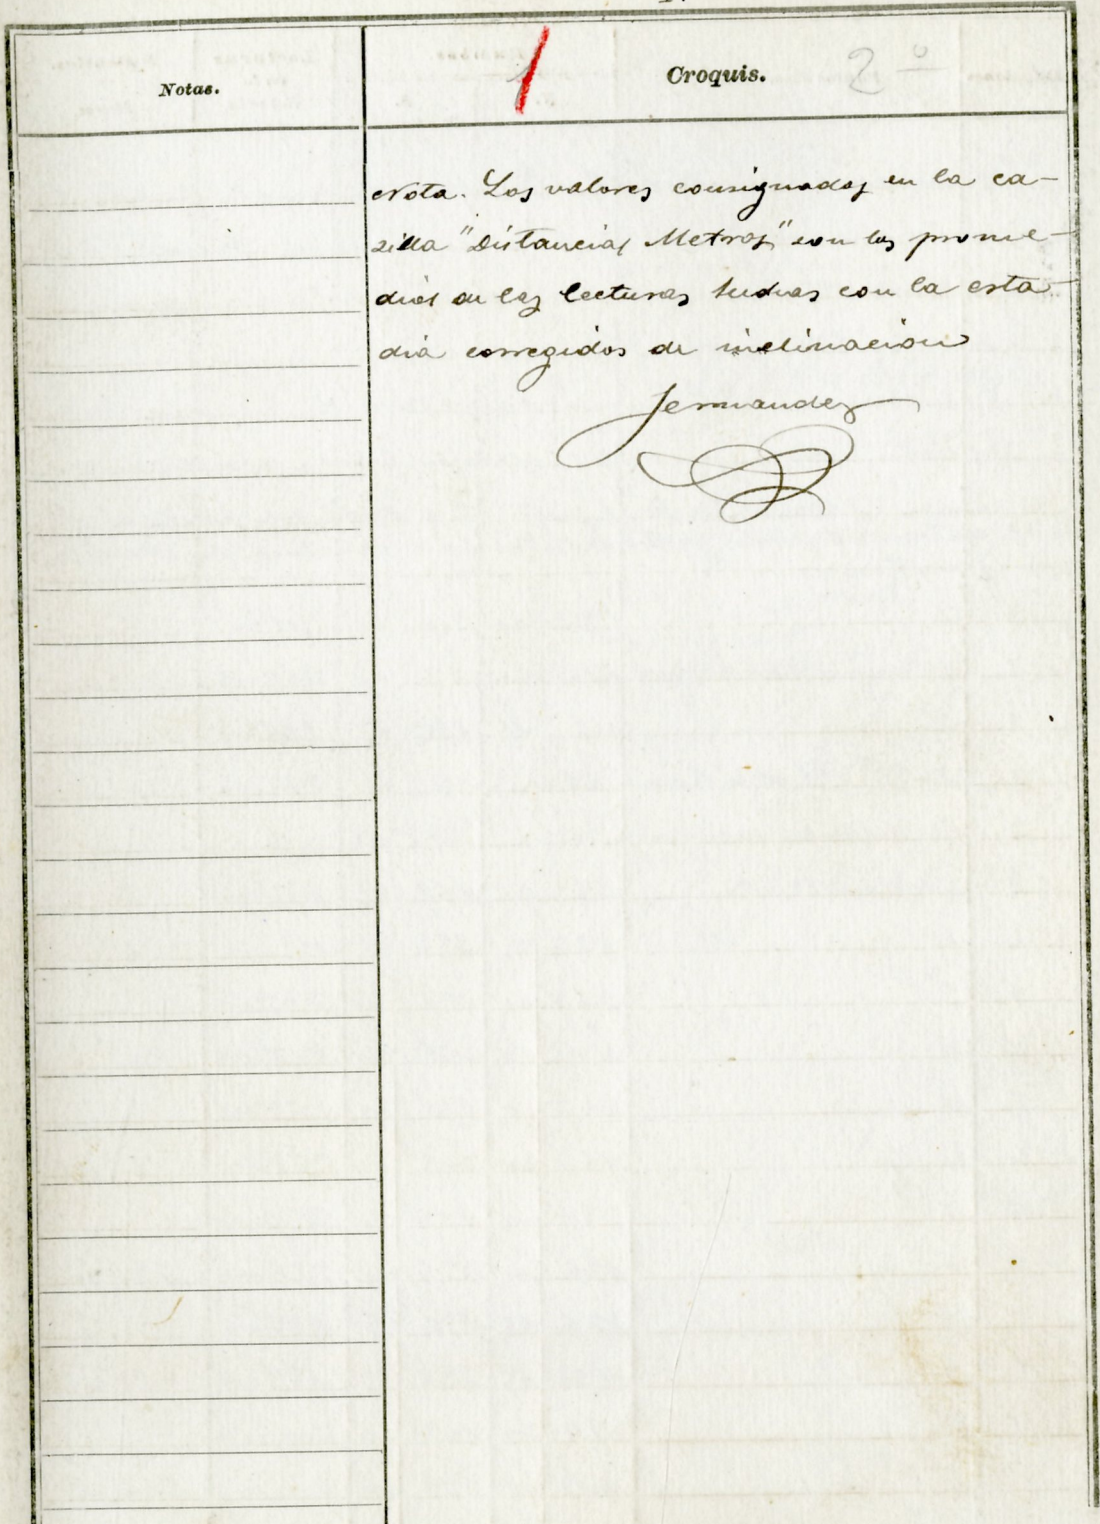 Notas.
1 Croquis. 2º
Nota. Los valores consignados en la ca-
silla "Distancias Metros" son los prome-
dios de las lecturas hechas con la esta-
dia corregidos de inclinacion
Fernandez